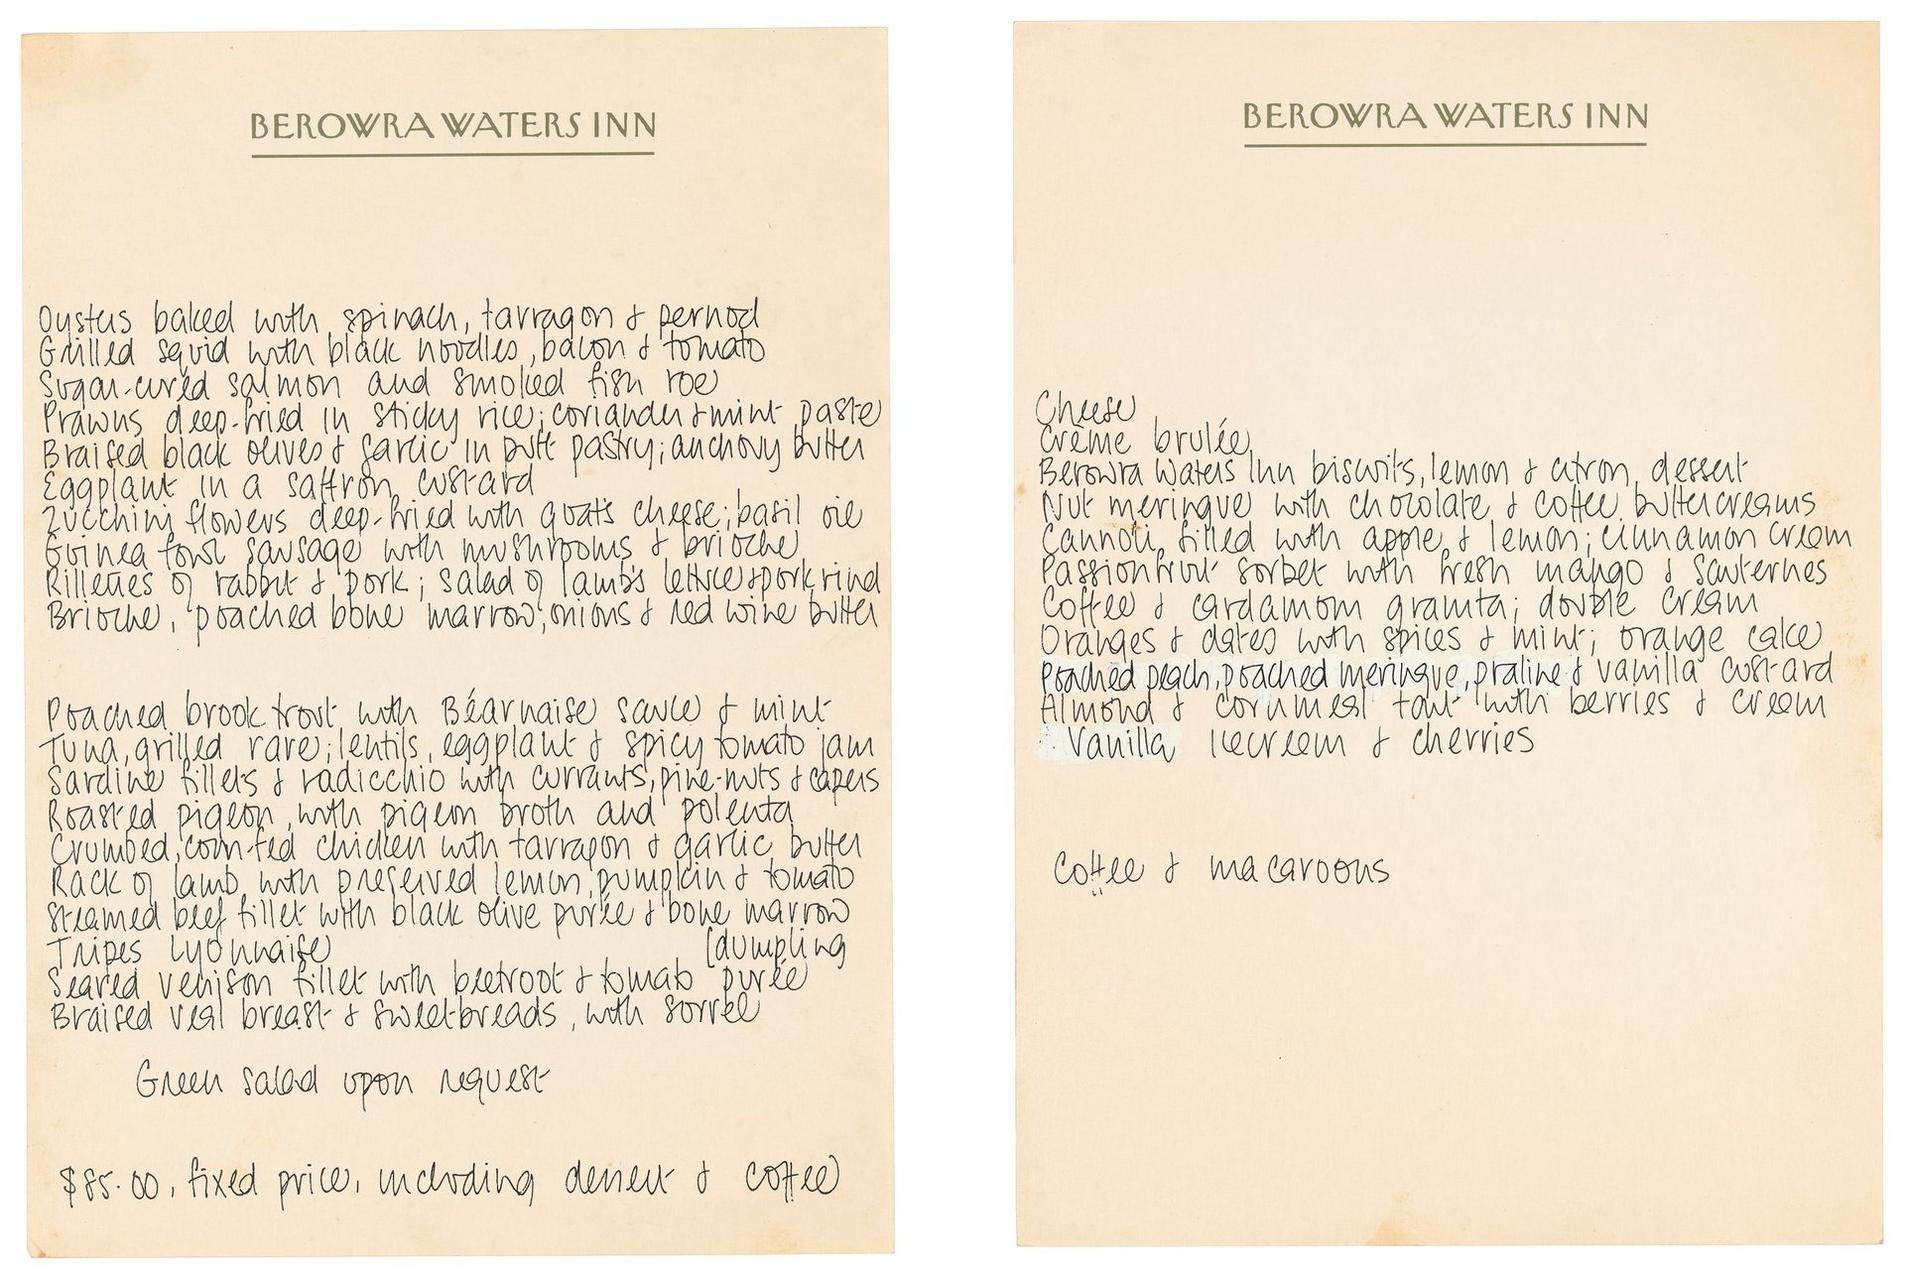 BEROWRA WATERS INN
Oysters baked with spinach, tarragon & pernod
Grilled squid with black noodles, bacon & tomato
Sugar-cured salmon and smoked fish roe
Prawns deep-fried in sticky rice; coriander & mint paste
Braised black olives & garlic in puff pastry; anchovy butter
Eggplant in a saffron custard
Zucchini flowers deep-fried with goat's cheese; basil oil
Guinea fowl sausage with mushrooms & brioche
Rillettes of rabbit & pork; salad of lamb's lettuce & pork rind
Brioche, poached bone marrow, onions & red wine butter
Poached brook trout with Béarnaise sauce & mint
Tuna, grilled rare; lentils, eggplant & spicy tomato jam
Sardine fillets & radicchio with currants, pine-nuts & capers
Roasted pigeon, with pigeon broth and polenta
Crumbed, corn-fed chicken with tarragon & garlic butter
Rack of lamb with preserved lemon, pumpkin & tomato
Steamed beef fillet with black olive purée & bone marrow
Tripes Lyonnaise [dumpling
Seared venison fillet with beetroot & tomato purée
Braised veal breast & sweetbreads, with sorrel
Green salad upon request
$85.00, fixed price, including dessert & coffee
BEROWRA WATERS INN
Cheese
Crème brulée
Berowra Waters Inn biscuits, lemon & citron dessert
Nut meringue with chocolate & coffee buttercreams
Cannoli filled with apple & lemon; cinnamon cream
Passionfruit sorbet with fresh mango & Sauternes
Coffee & cardamom granita; double cream
Oranges & dates with spices & mint; orange cake
Poached peach, poached meringue, praline & vanilla custard
Almond & cornmeal tart with berries & cream
Vanilla icecream & cherries
Coffee & macaroons